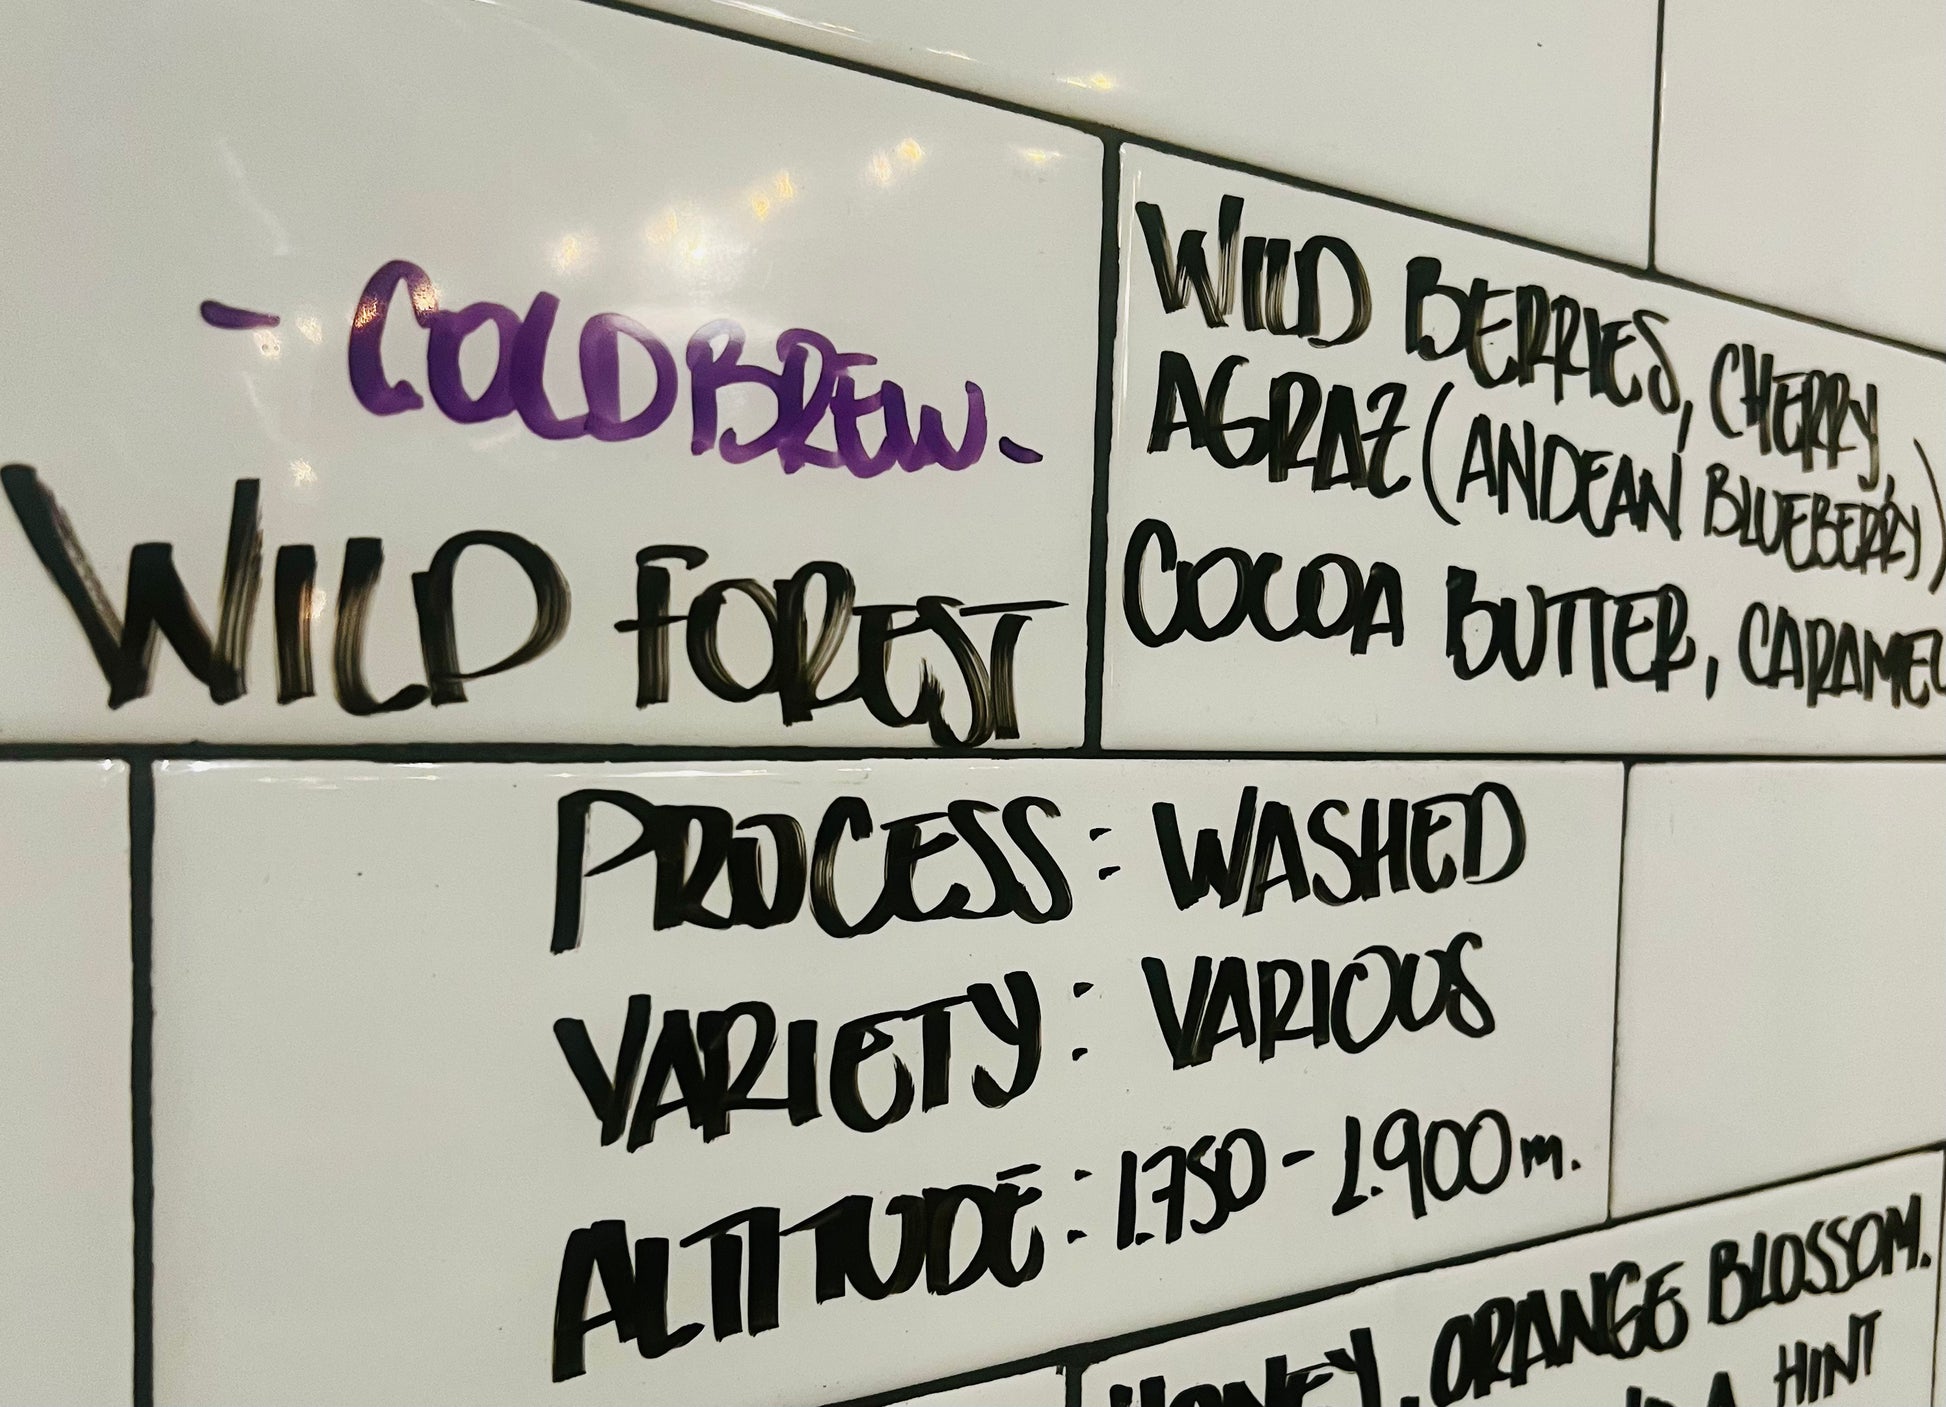 - COLDBREW -
WILD FOREST
WILD BERRIES, CHERRY,
AGRAZ (ANDEAN BLUEBERRY)
COCOA BUTTER, CARAMEL
PROCESS: WASHED
VARIETY: VARIOUS
ALTITUDE: 1.750 - 1.900 m.
HONEY, ORANGE BLOSSOM.
HINT